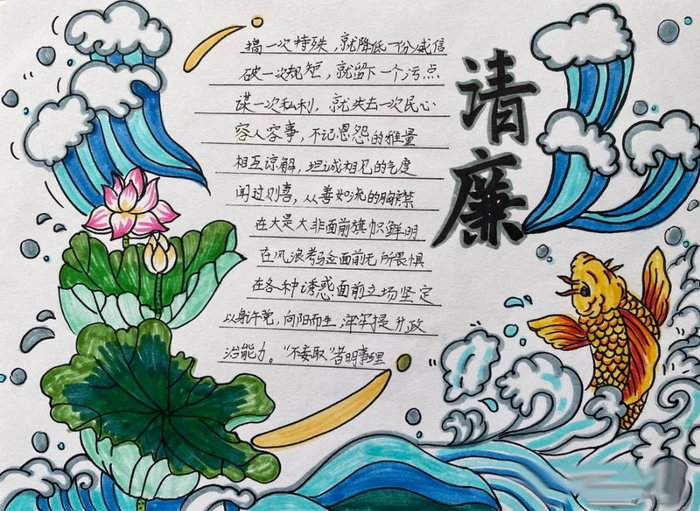 请廉
搞一次特殊，就降低一份威信
破一次规矩，就留下一个污点
谋一次私利，就失去一次民心
容人容事，不记恩怨的雅量
相互谅解，坦诚相见的气度
闻过则喜，从善如流的胸襟
在大是大非面前旗帜鲜明
在风浪考验面前无所畏惧
在各种诱惑面前立场坚定
以身许党，向阳而生，牢牢提升政
治能力。“不妄取”告明事理